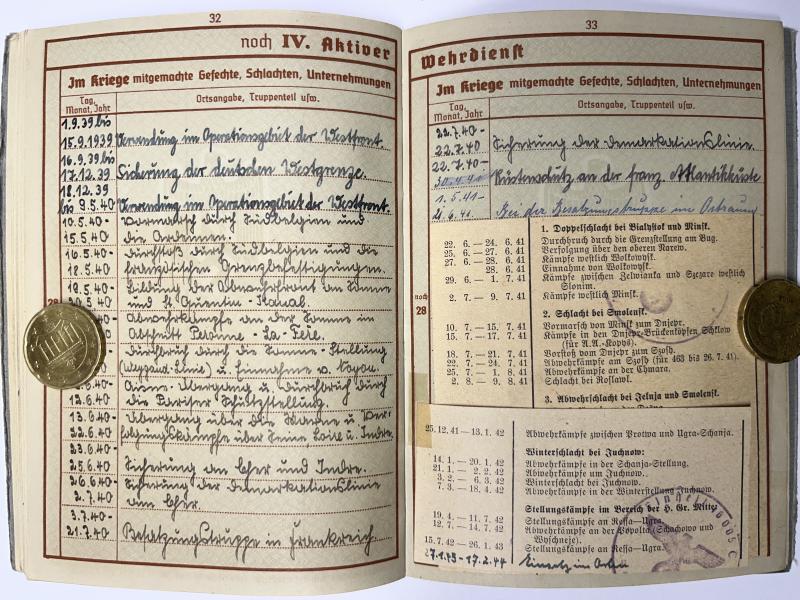 32
noch IV. Aktiver
Im Kriege mitgemachte Gefechte, Schlachten, Unternehmungen
Tag, Monat, Jahr
Ortsangabe, Truppenteil usw.
1.9.39 bis
15.9.1939 Verwendung im Operationsgebiet der Westfront.
16.9.39 bis
17.12.39 Sicherung der deutschen Westgrenze.
18.12.39
bis 9.5.40 Verwendung im Operationsgebiet der Westfront.
10.5.40- Vormarsch durch Südbelgien und
15.5.40 die Ardennen.
16.5.40- Durchstoß durch Südbelgien und die
18.5.40 französischen Grenzbefestigungen.
19.5.40- Bildung der Abwehrfront an Somme
20.5.40 und St. Quentin-Kanal.
Abwehrkämpfe an der Somme im
Abschnitt Peronne - La-Fere.
Durchbruch durch die Somme-Stellung
(Weygand-Linie) u. Einnahme v. Noyon.
6.40- Aisne-Übergang u. Durchbruch durch
12.6.40 die Pariser Schutzstellung.
13.6.40- Übergang über die Marne u. Ver-
22.6.40 folgungskämpfe über Seine Loire u. Indre.
23.6.40-
25.6.40 Sicherung an Cher und Indre.
26.6.40- Sicherung der Demarkationslinie
2.7.40 am Cher.
3.7.40-
21.7.40 Besatzungstruppe in Frankreich.
33
Wehrdienst
Im Kriege mitgemachte Gefechte, Schlachten, Unternehmungen
Tag, Monat, Jahr
Ortsangabe, Truppenteil usw.
22.7.40-
22.7.40 Sicherung der Demarkationslinie.
22.7.40-
30.4.41 Küstenschutz an der franz. Atlantikküste
1.5.41-
21.6.41. Bei der Besatzungstruppe im Ostraum
noch
28
1. Doppelschlacht bei Bialystok und Minsk.
22. 6. — 24. 6. 41 Durchbruch durch die Grenzstellung am Bug.
25. 6. — 27. 6. 41 Verfolgung über den oberen Narew.
27. 6. — 28. 6. 41 Kämpfe westlich Wolkowysk.
28. 6. 41 Einnahme von Wolkowysk.
29. 6. — 1. 7. 41 Kämpfe zwischen Zelwianka und Szczara westlich
Slonim.
2. 7. — 9. 7. 41 Kämpfe westlich Minsk.
2. Schlacht bei Smolensk.
10. 7. — 15. 7. 41 Vormarsch von Minsk zum Dnjepr.
15. 7. — 17. 7. 41 Kämpfe in den Dnjepr-Brückenköpfen Schklow
(für A.A.-Kopys).
18. 7. — 21. 7. 41 Vorstoß vom Dnjepr zum Szosh.
22. 7. — 24. 7. 41 Abwehrkämpfe am Szosh (für 463 bis 26. 7. 41).
25. 7. — 1. 8. 41 Abwehrkämpfe an der Chmara.
2. 8. — 9. 8. 41 Schlacht bei Roslawl.
3. Abwehrschlacht bei Jelnja und Smolensk.
25. 12. 41 — 13. 1. 42 Abwehrkämpfe zwischen Protwa und Ugra-Schanja.
Winterschlacht bei Juchnow:
14. 1. — 20. 1. 42 Abwehrkämpfe in der Schanja-Stellung.
21. 1. — 2. 2. 42 Abwehrkämpfe um Juchnow.
3. 2. — 6. 3. 42 Winterschlacht bei Juchnow.
7. 3. — 18. 4. 42 Abwehrkämpfe in der Winterstellung Juchnow.
Stellungskämpfe im Bereich der H. Gr. Mitte
19. 4. — 11. 7. 42 Stellungskämpfe an Ressa—Ugra.
12. 7. — 14. 7. 42 Abwehrkämpfe an der Popolta (Schachowo und
Wyschneje).
15. 7. 42 — 26. 1. 43 Stellungskämpfe an Ressa—Ugra.
27.1.43 - 17.2.44 Einsatz im Osten